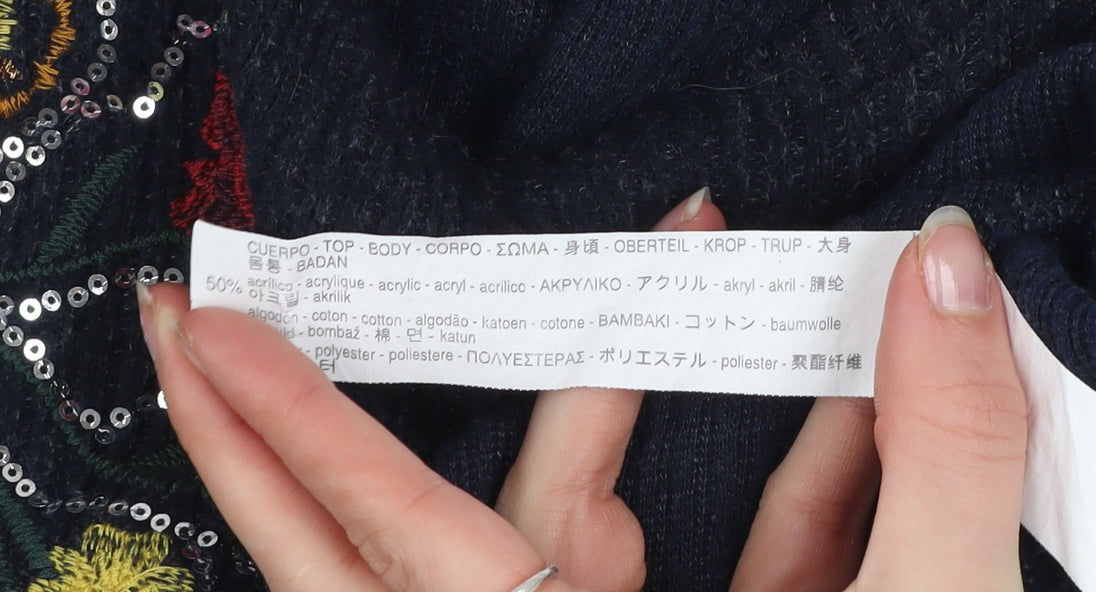 CUERPO - TOP - BODY - CORPO - ΣΩΜΑ - 身頃 - OBERTEIL - KROP - TRUP - 大身
몸통 - BADAN
50% acrílico - acrylique - acrylic - acryl - acrilico - ΑΚΡΥΛΙΚΟ - アクリル - akryl - akril - 腈纶
아크릴 - akrilik
algodón - coton - cotton - algodão - katoen - cotone - ΒΑΜΒΑΚΙ - コットン - baumwolle
- bombaž - 棉 - 면 - katun
- polyester - poliestere - ΠΟΛΥΕΣΤΕΡΑΣ - ポリエステル - poliester - 聚酯纤维